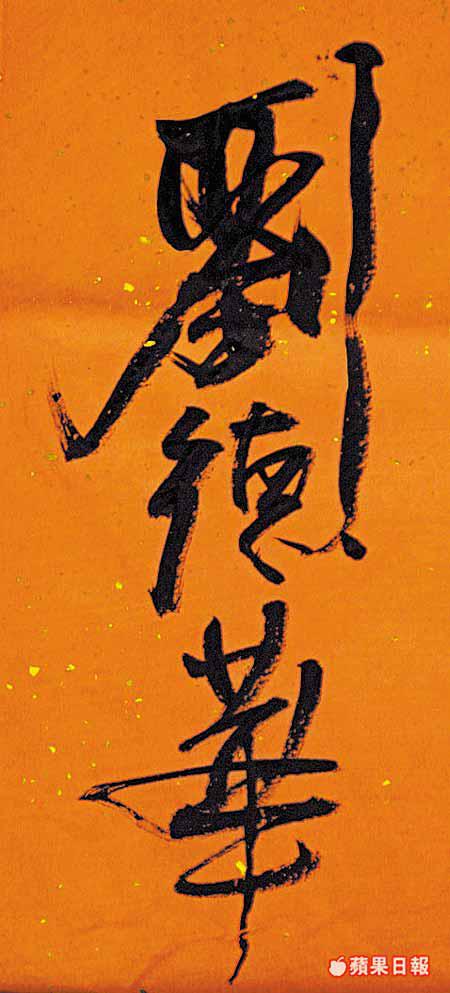 劉德華
蘋果日報